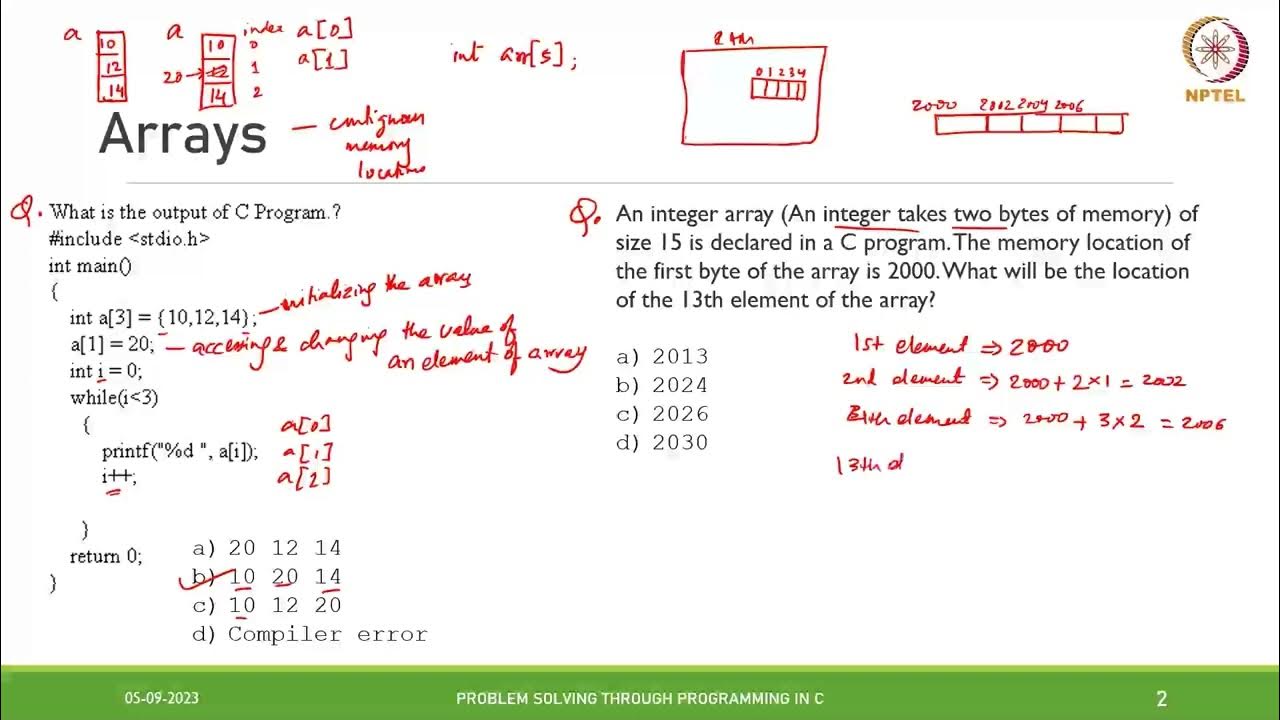 a
10
12
14
a
10
12
14
20
index
0
1
2
a[0]
a[1]
int arr[5];
RAM
0 1 2 3 4
2000 2002 2004 2006
NPTEL
Arrays
— contiguous
memory
locations
Q. What is the output of C Program.?
#include <stdio.h>
int main()
{
int a[3] = {10,12,14}; — initializing the array
a[1] = 20; — accessing & changing the value of
an element of array
int i = 0;
while(i<3)
{
a[0]
printf("%d ", a[i]); a[1]
i++; a[2]
}
return 0;
}
a) 20 12 14
b) 10 20 14
c) 10 12 20
d) Compiler error
Q. An integer array (An integer takes two bytes of memory) of
size 15 is declared in a C program. The memory location of
the first byte of the array is 2000. What will be the location
of the 13th element of the array?
a) 2013
b) 2024
c) 2026
d) 2030
1st element ⇒ 2000
2nd element ⇒ 2000 + 2×1 = 2002
element ⇒ 2000 + 3×2 = 2006
13th el
05-09-2023
PROBLEM SOLVING THROUGH PROGRAMMING IN C
2